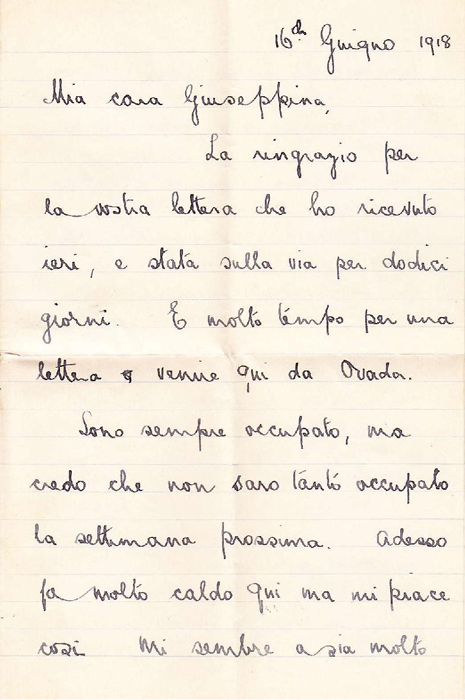 16th Guigno 1918
Mia cara Giuseppina,
La ringrazio per
la vostra lettera che ho ricevuto
ieri, e stata sulla via per dodici
giorni. E molto tempo per una
lettera a venire qui da Ovada.
Sono sempre occupato, ma
credo che non saro tanto occupato
la settimana prossima. Adesso
fa molto caldo qui ma mi piace
cosi Mi sembre a sia molto